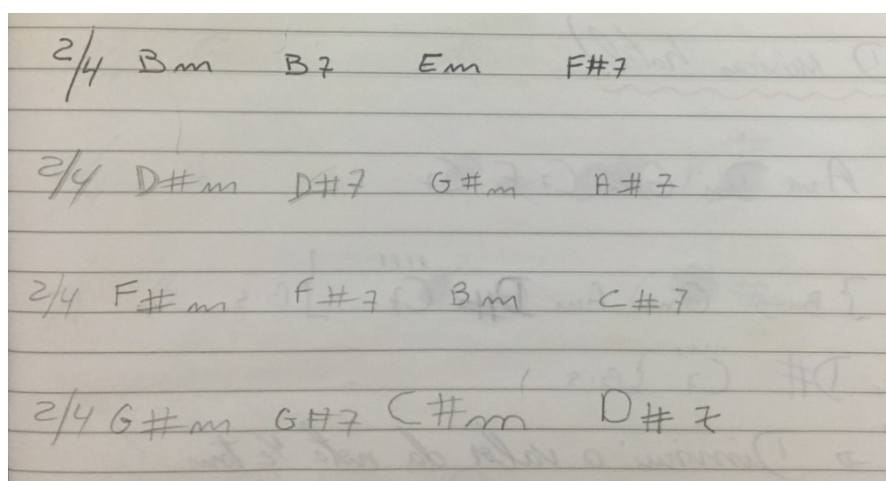 2/4 Bm B7 Em F#7
2/4 D#m D#7 G#m A#7
2/4 F#m F#7 Bm C#7
2/4 G#m G#7 C#m D#7